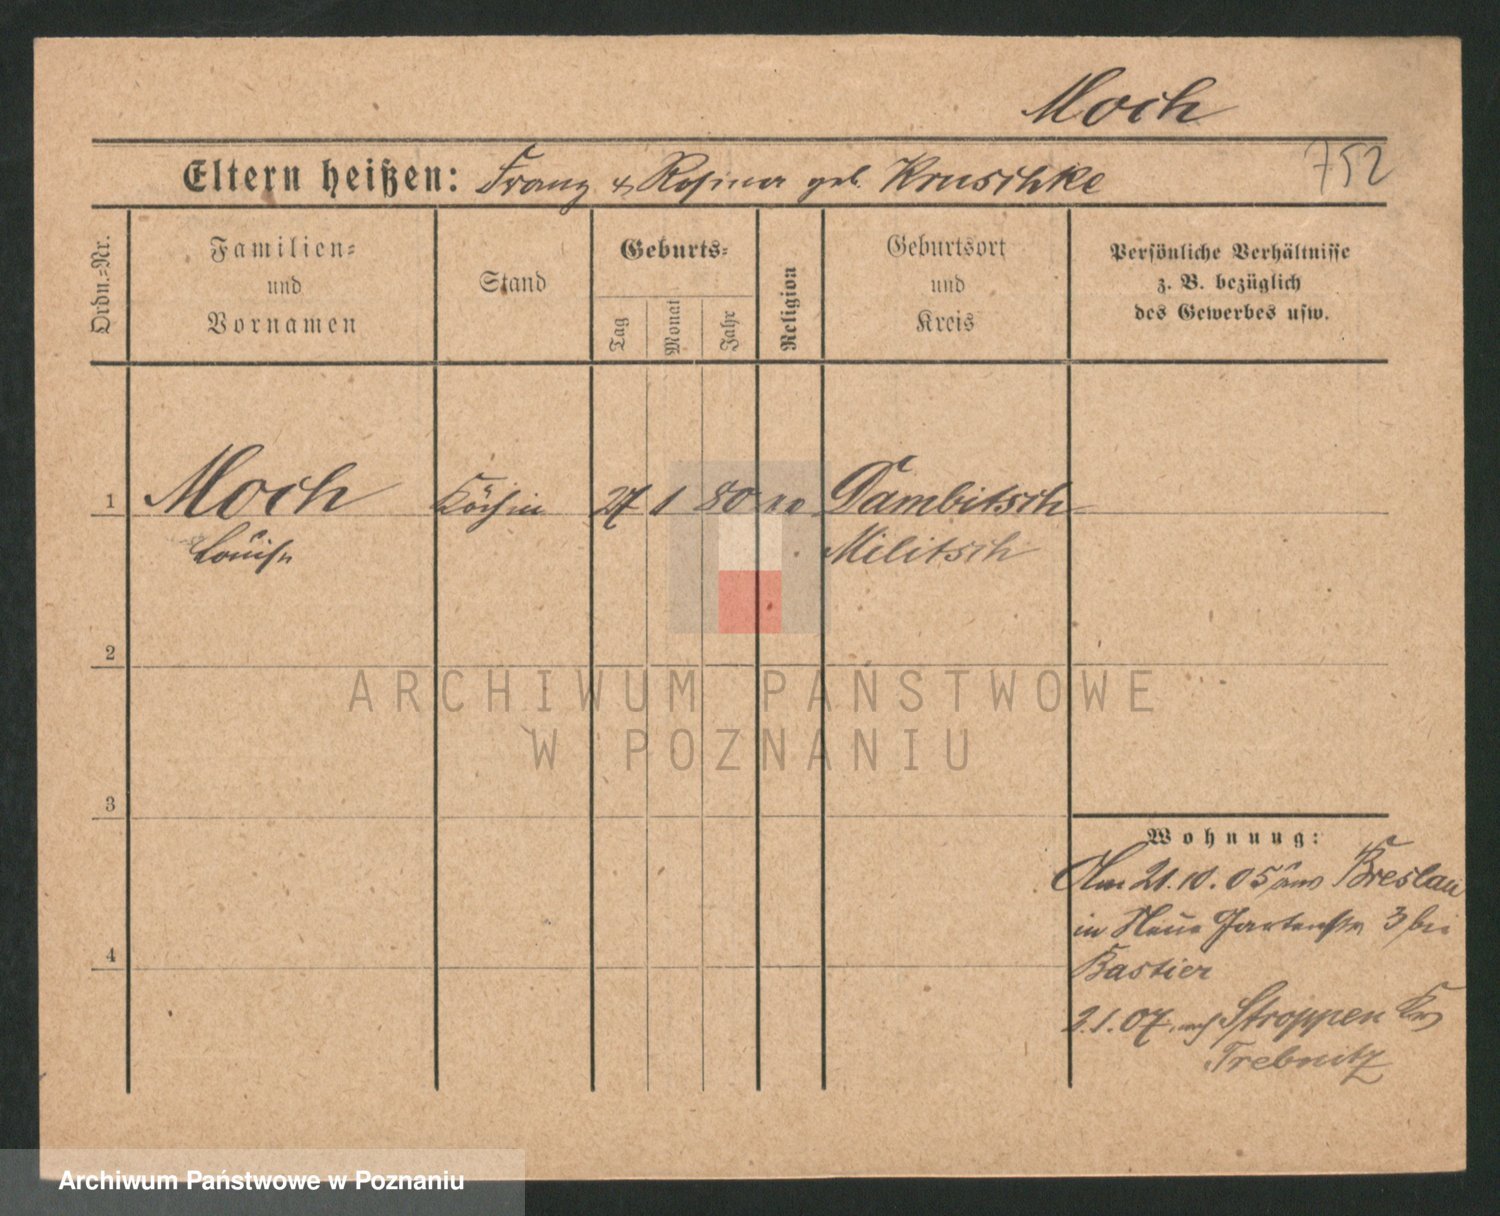 Moch
752
Eltern heißen: Franz & Rosina geb. Kruschke
Ordn.-Nr.
Familien-
und
Vornamen
Stand
Geburts-
Tag
Monat
Jahr
Religion
Geburtsort
und
Kreis
Persönliche Verhältnisse
z. B. bezüglich
des Gewerbes usw.
1 Moch Köchin 27 1 80 Dambitsch
Louise Militsch
2
3
4
Wohnung:
Am 21.10.05 aus Breslau
in Neue Gartenstr 3 bei
Bastier
2.1.07 nach Stroppen Krs
Trebnitz
ARCHIWUM PAŃSTWOWE
W POZNANIU
Archiwum Państwowe w Poznaniu